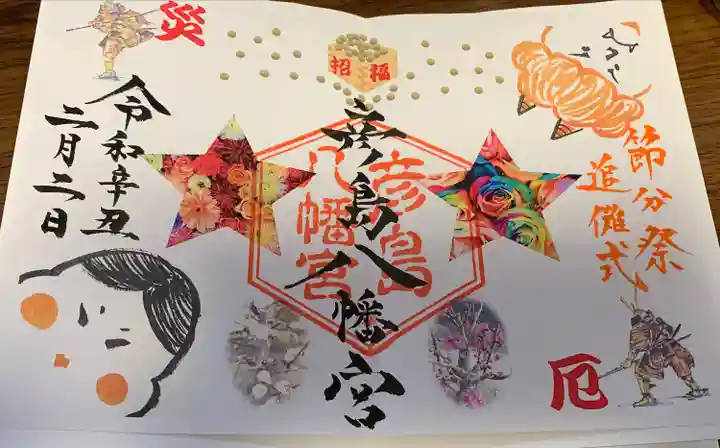 節分祭
追儺式
招福
彦島八幡宮
彦島
八幡宮
災
令和辛丑
二月二日
厄